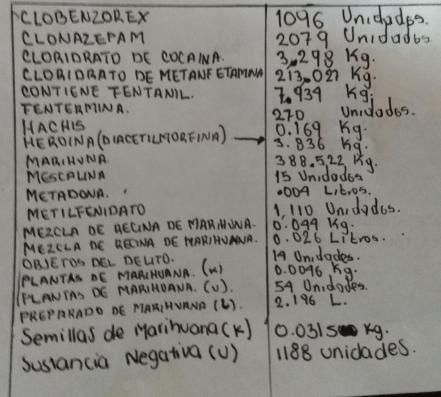 CLOBENZOREX 1096 Unidades.
CLONAZEPAM 2079 Unidades
CLORIDRATO DE COCAINA. 3,298 Kg.
CLORIDRATO DE METANFETAMINA 213.027 Kg.
CONTIENE FENTANIL. 7.939 Kg.
FENTERMINA. 270 Unidades.
HACHIS 0.169 Kg.
HEROINA (DIACETILMORFINA) → 3.836 Kg.
MARIHUNA 388.522 Kg.
MESCALINA 15 Unidades
METADONA. .004 Litros.
METILFENIDATO 1,110 Unidades.
MEZCLA DE RECINA DE MARIHUNA. 0.099 Kg.
MEZCLA DE RECINA DE MARIHUANA. 0.026 Litros.
OBJETOS DEL DELITO. 19 Unidades.
PLANTAS DE MARIHUANA. (K) 0.0096 Kg.
PLANTAS DE MARIHUANA. (U). 54 Unidades.
PREPARADO DE MARIHUANA (L). 2.196 L.
Semillas de Marihuana (K) 0.0315 Kg.
Sustancia Negativa (U) 1188 unidades.